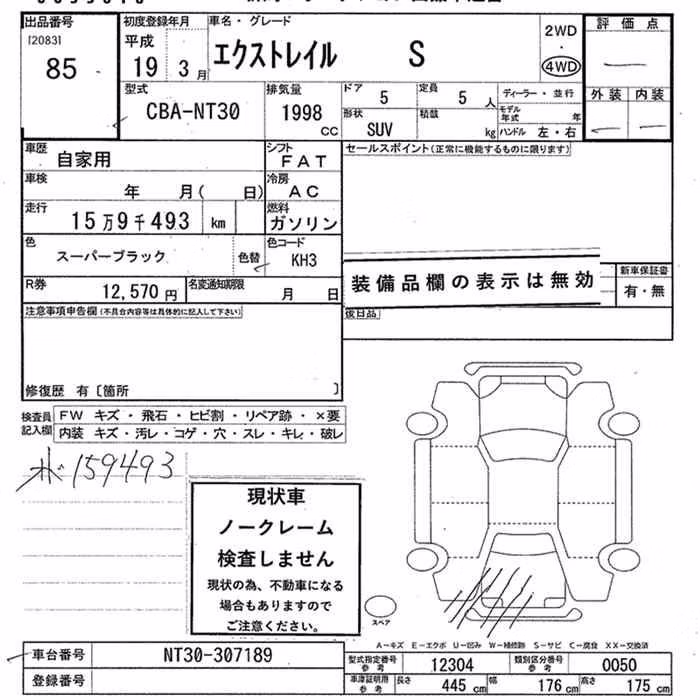 出品番号
[2083]
85
初度登録年月
平成
19 3月
車名・グレード
エクストレイル S
2WD
・
4WD
評価点
外装 内装
型式
CBA-NT30
排気量
1998
CC
ドア
5
定員
5 人
形状
SUV
積載
kg
ディーラー・並行
モデル年式 年
ハンドル 左・右
車歴
自家用
シフト
FAT
車検
年 月( 日)
冷房
AC
走行
15万9千493 km
燃料
ガソリン
色
スーパーブラック
色替
色コード
KH3
R券
12,570 円
名変通知期限
月 日
セールスポイント(正常に機能するものに限ります)
装備品欄の表示は無効
新車保証書
有・無
後日品
注意事項申告欄(不具合内容等は具体的に記入して下さい)
修復歴 有〔箇所 〕
検査員記入欄
FW キズ・飛石・ヒビ割・リペア跡・×要
内装 キズ・汚レ・コゲ・穴・スレ・キレ・破レ
159493
現状車
ノークレーム
検査しません
現状の為、不動車になる
場合もありますので
ご注意ください。
スペア
A-キズ E-エクボ U-凹み W-補修跡 S-サビ C-腐食 XX-交換済
車台番号
NT30-307189
登録番号
型式指定番号
参考
12304
類別区分番号
参考
0050
車庫証明用
参考
長さ 445 cm 幅 176 cm 高さ 175 cm